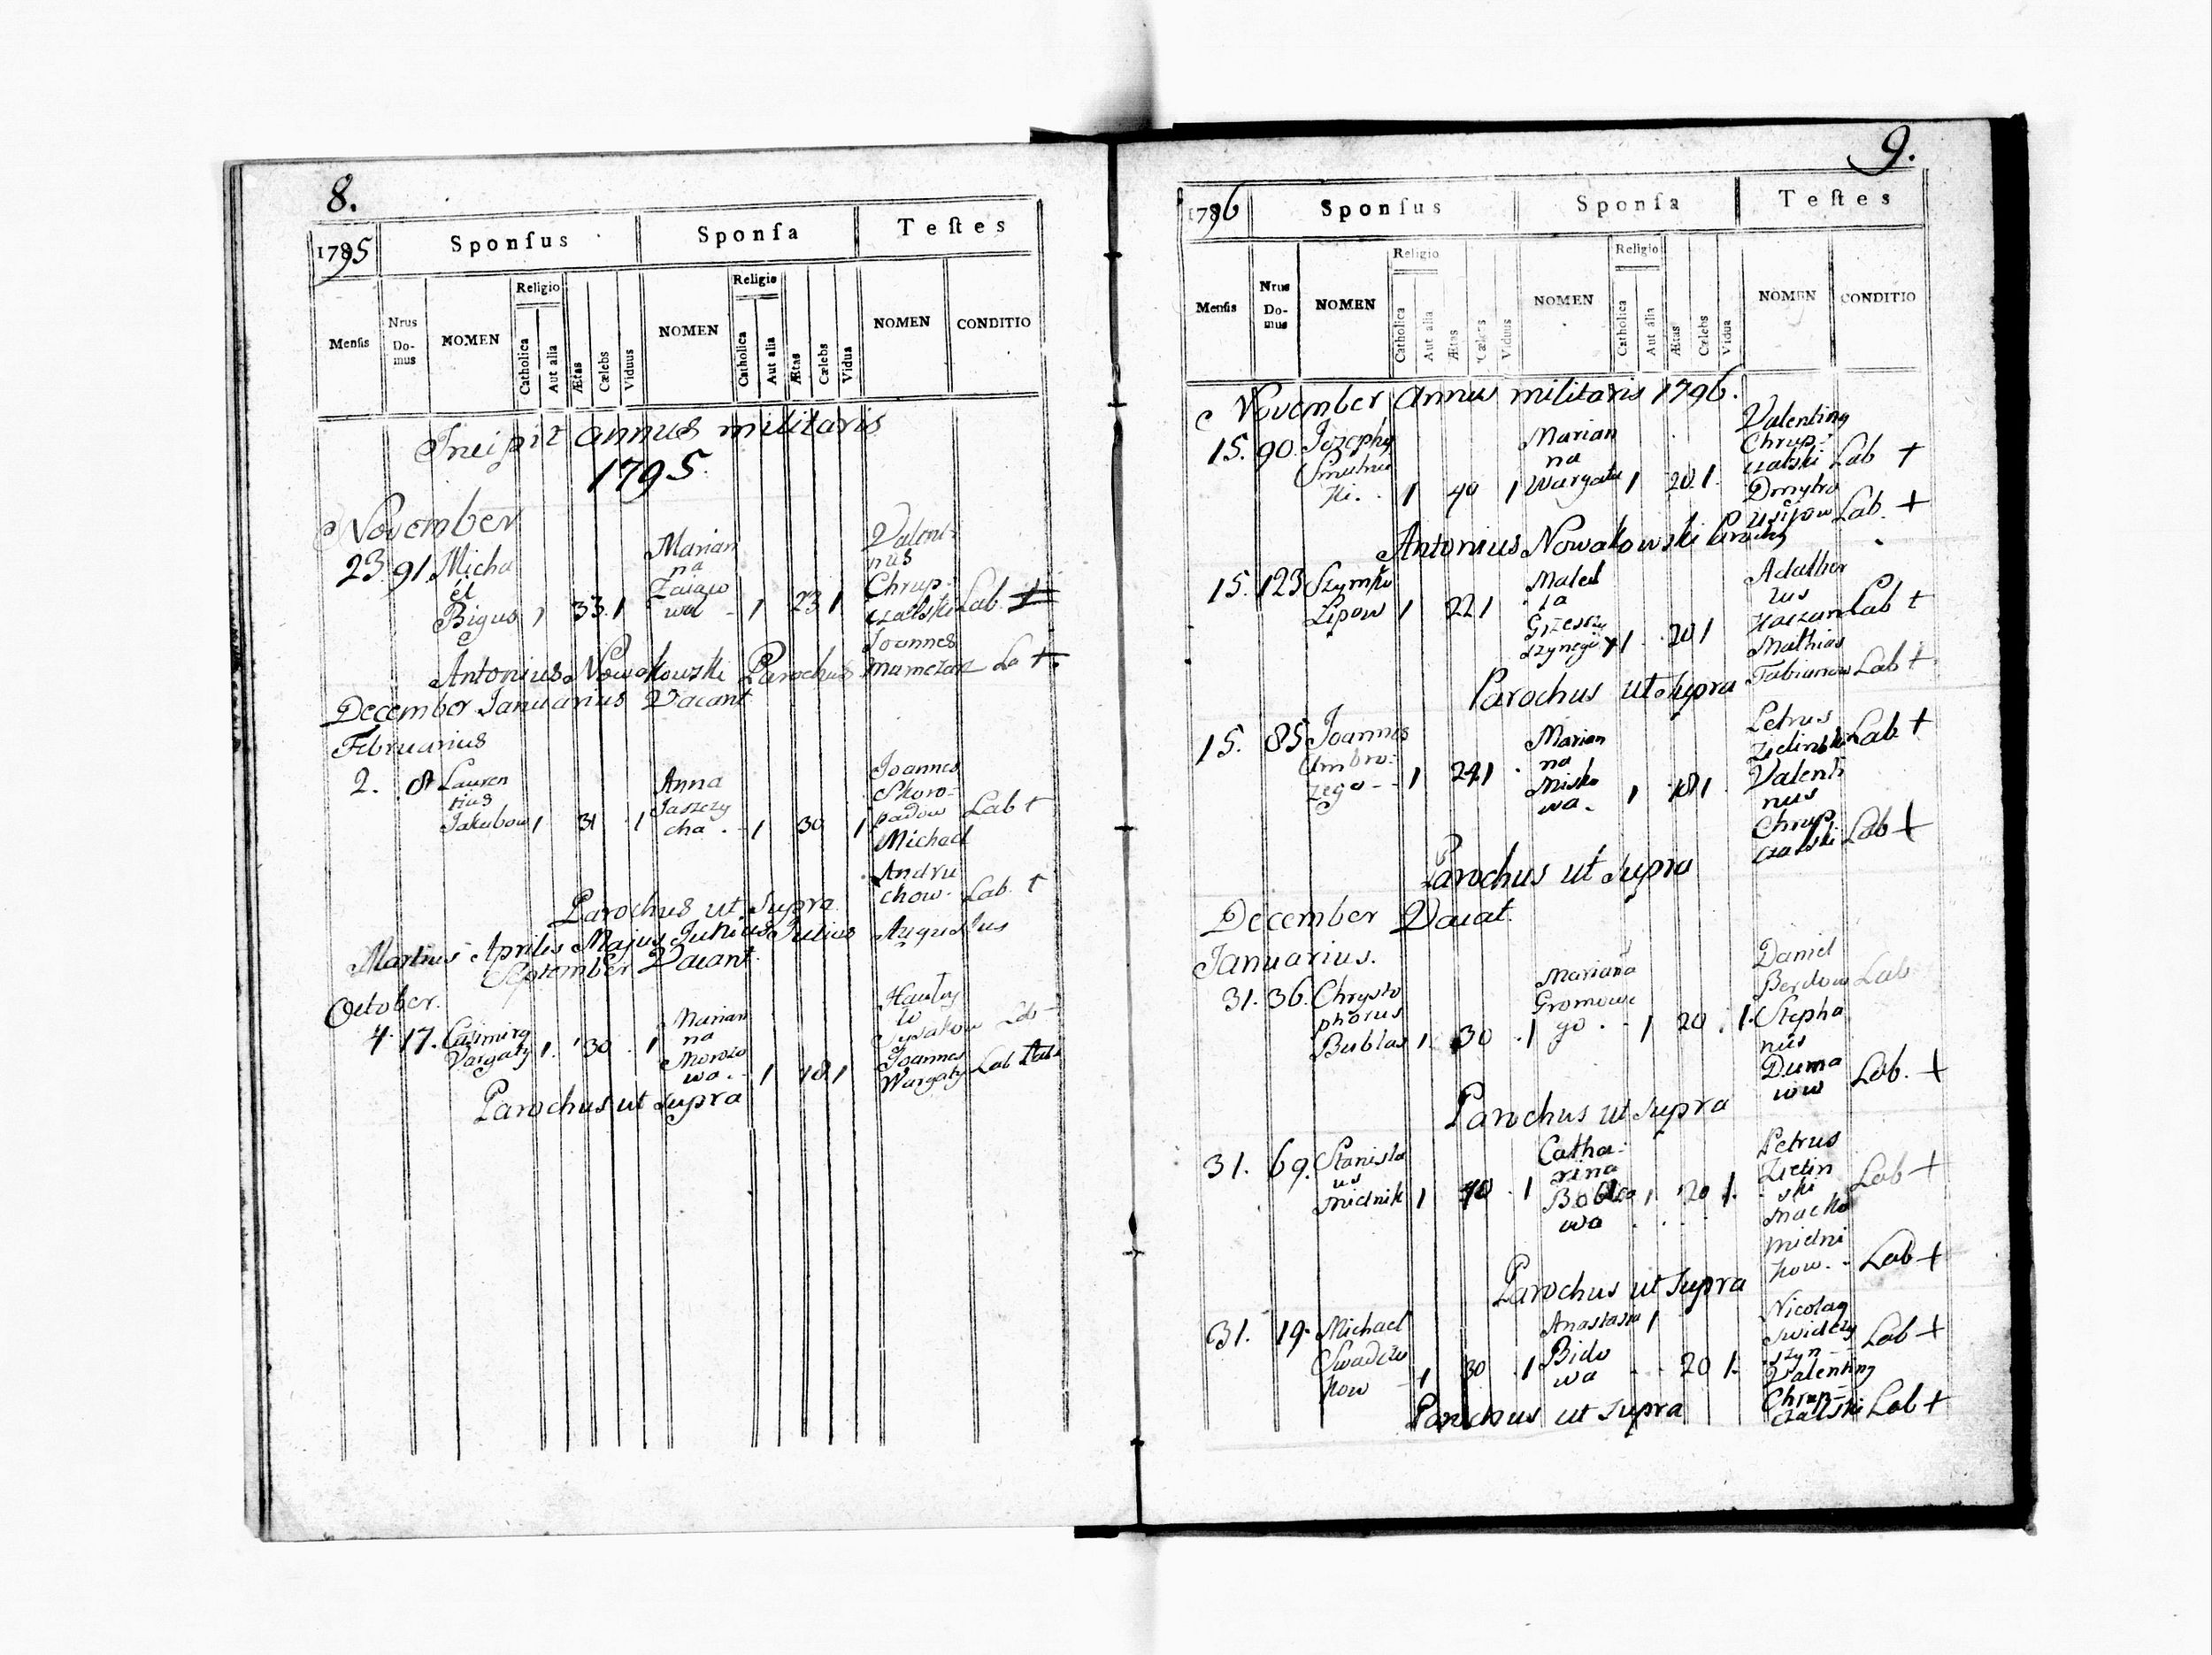 8.
1795 Sponſus Sponſa Teſtes
Menſis Nrus Do-mus NOMEN Religio Catholica Aut alia Ætas Cælebs Viduus NOMEN Religio Catholica Aut alia Ætas Cælebs Vidua NOMEN CONDITIO
Incipit annus militaris
1795.
November
23. 91. Micha
el
Bigus 1 33. 1
Marian
na
1 23 1
Valenti-
nus
Chrup-
czalski Lab. +
Joannes
Antonius Nowakowski Parochus
December Januarius Vacant
Februarius
2. Lauren
tius
Jakubow 1 31 1
Anna
Jaszczy
cha. 1 30 1
Joannes
Skoro-
padow Lab +
Michael
Andru
chow. Lab. +
Parochus ut Supra
Martius Aprilis Majus Junius Julius Augustus
September Vacant.
October.
4. 17. Casimirg
Vargaty 1. 30. 1
Marian
na
Morozo
wa. 1 18. 1
Joannes
Wargaty Lab
Parochus ut Supra
9.
1796 Sponſus Sponſa Teſtes
Menſis Nrus Do-mus NOMEN Religio Catholica Aut alia Ætas Cælebs Viduus NOMEN Religio Catholica Aut alia Ætas Cælebs Vidua NOMEN CONDITIO
November Annus militaris 1796.
15. 90. Jozephg
Smutnic
ki. 1 40 1
Marian
na
Wargata 1 20. 1.
Valenting
Chrup-
czalski Lab +
Dmytro
Lab. +
Antonius Nowakowski
15. 123 Szymko
Lipow 1 22 1
1 20 1
Adalber
tus
Lab +
Mathias
Fabianow Lab +
Parochus ut Supra
15. 85. Joannes
Ambro-
zego - - 1 24 1
Marian
na
Misko
wa. 1 18 1
Petrus
Zielinski Lab. +
Valenti
nus
Chrup
czalski Lab +
Parochus ut Supra
December Vacat.
Januarius.
31. 36. Chrysto
phorus
Bublas 1. 30 . 1
Mariana
Gromowe
go. - 1 20 . 1.
Daniel
Berdow Lab
Stepha
nus
Duma
now Lab. +
Parochus ut Supra
31. 69. Stanisla
us
Mielnik 1 40 . 1
Catha-
rina
wa 1 20 1.
Petrus
Zielin
ski Lab +
Macko
Mielni
kow. - Lab +
Parochus ut Supra
31. 19. Michael
kow - 1 30 . 1
Anastasia 1
Bido
wa - - 20 1.
Nicolag
Lab +
Valenting
Chrup-
czalski Lab +
Parochus ut Supra